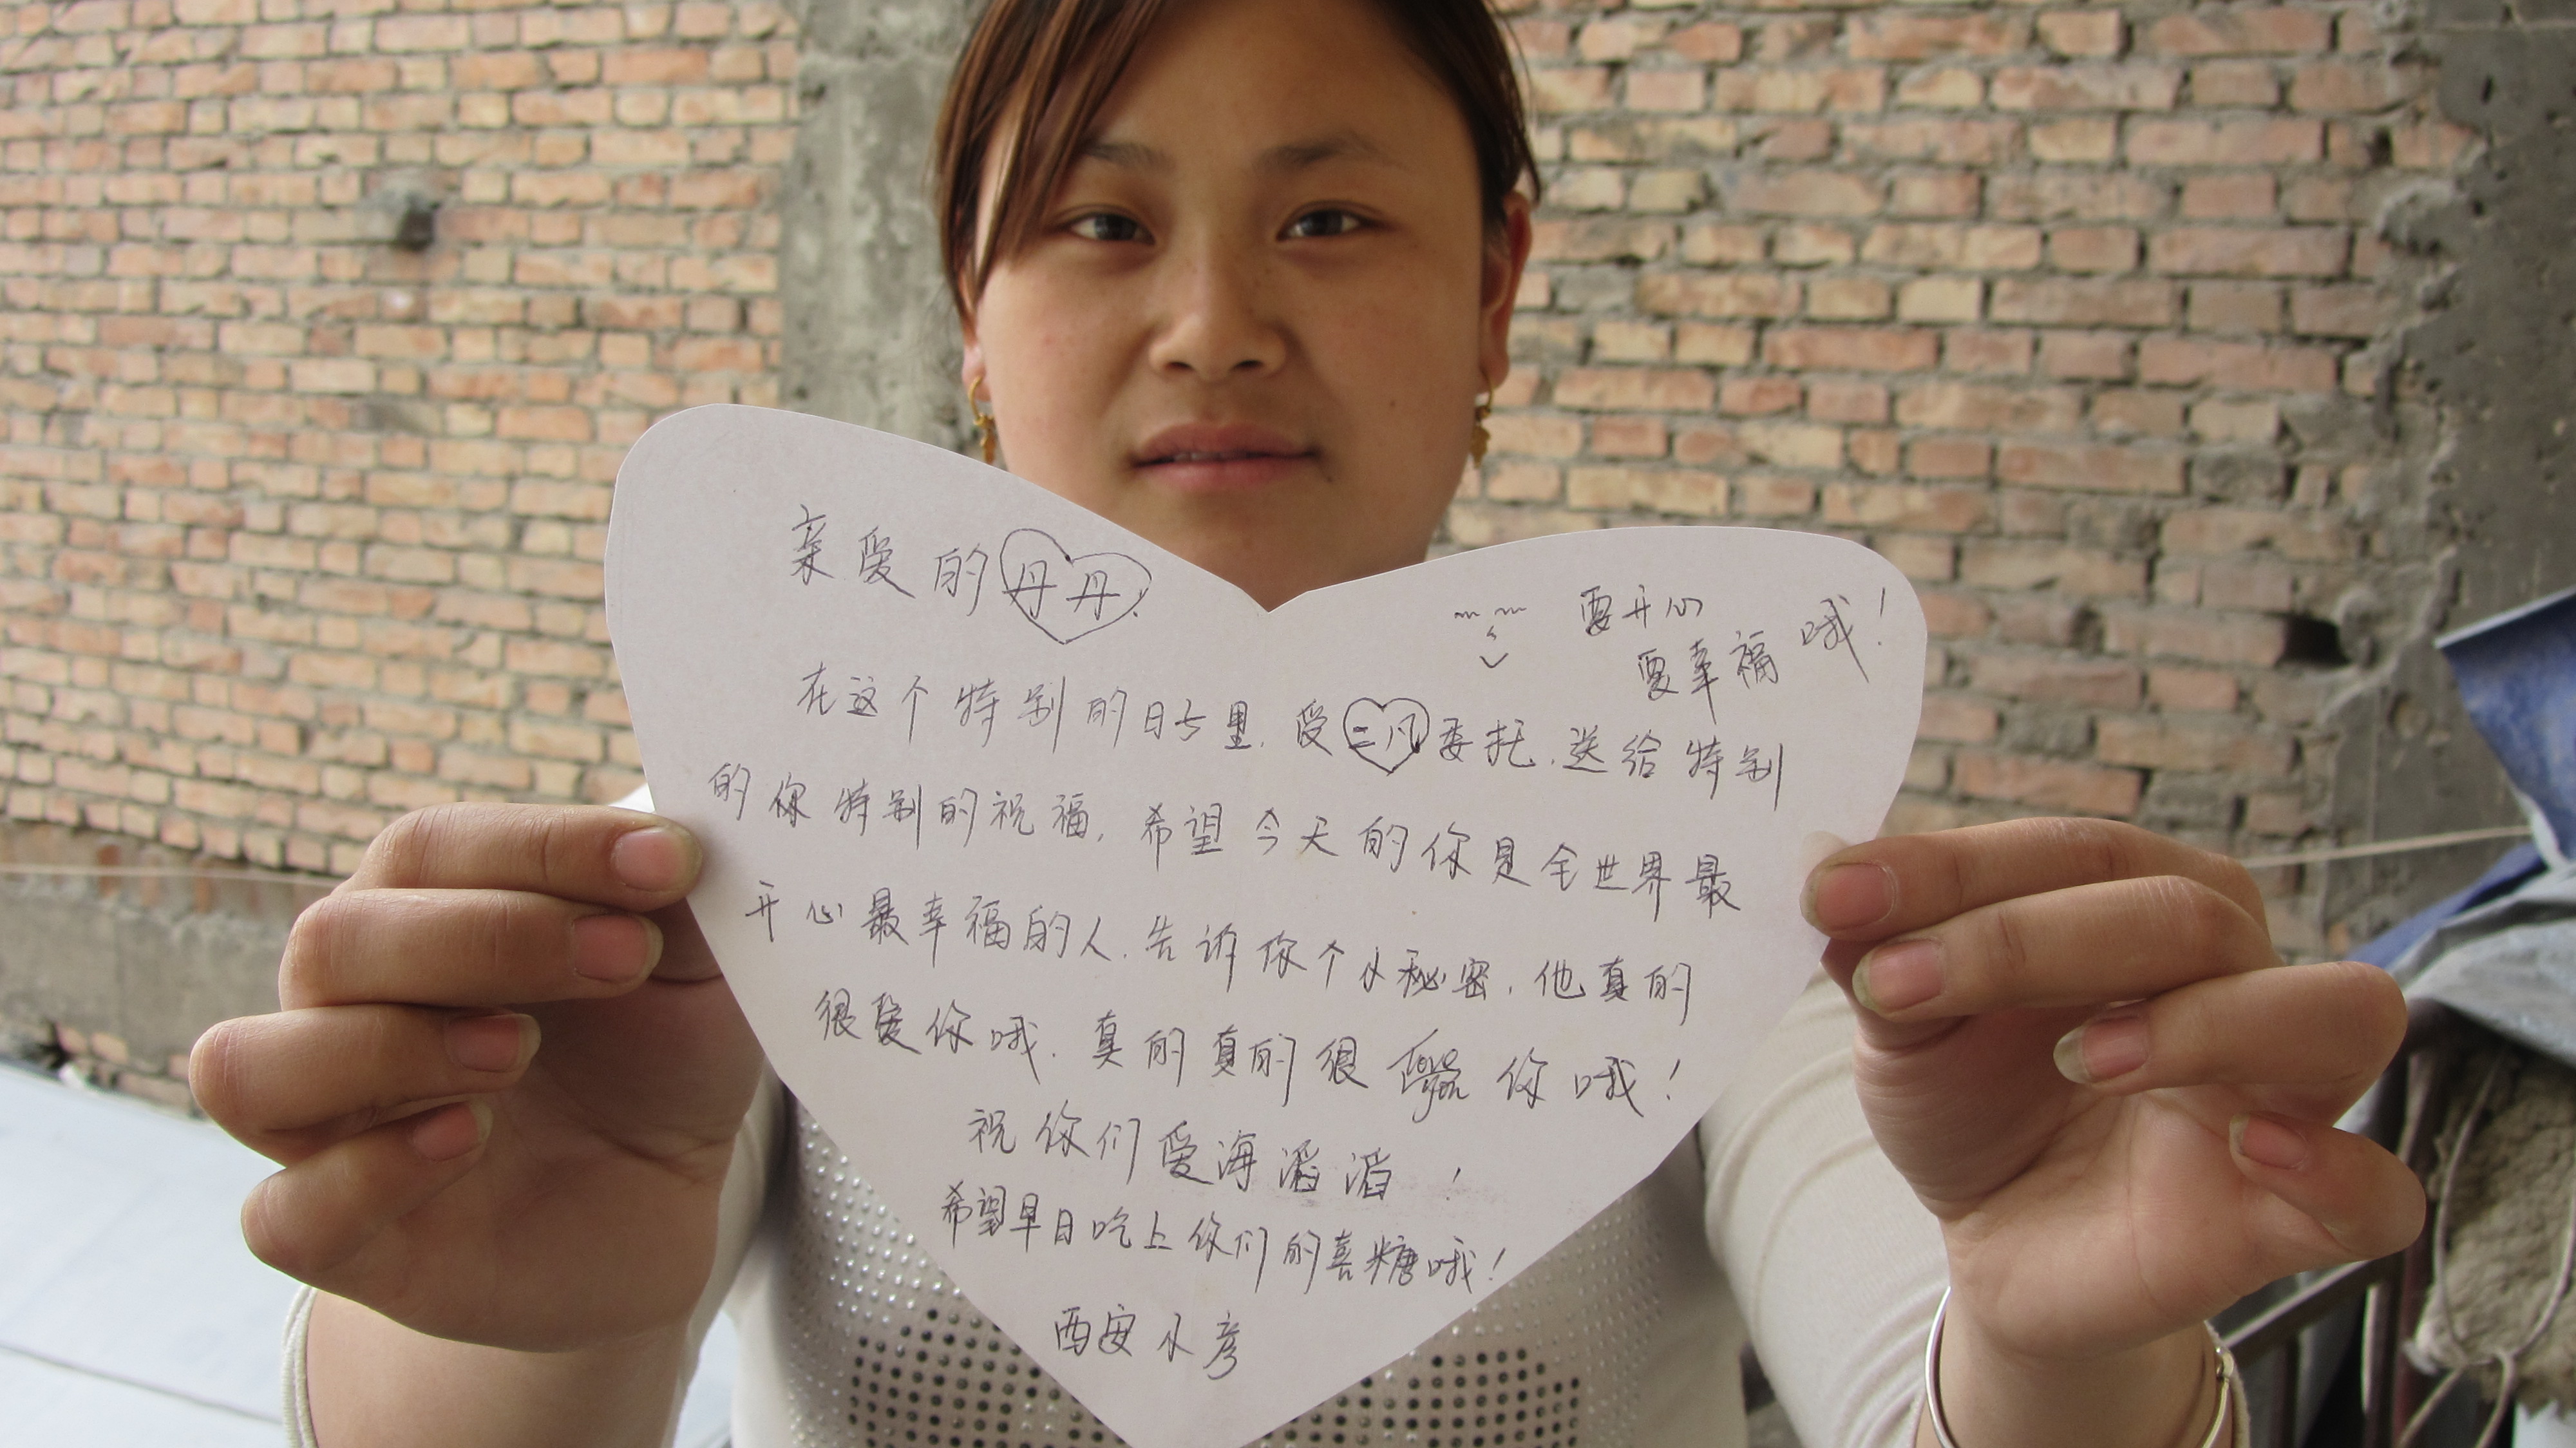 亲爱的丹丹:
要开心
要幸福哦!
在这个特别的日子里,受二凡委托,送给特别
的你特别的祝福,希望今天的你是全世界最
开心最幸福的人,告诉你个小秘密,他真的
很爱你哦,真的真的很你哦!
祝你们爱海滔滔!
希望早日吃上你们的喜糖哦!
西安小彦